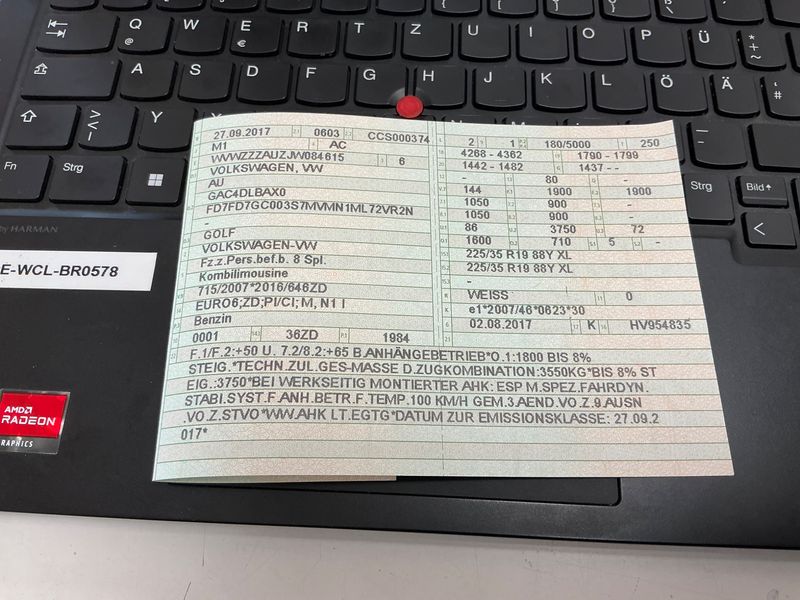 Q W E R T Z U I O P Ü + * ~
@ €
A S D F G H J K L Ö Ä # '
> < | Y X
Fn Strg Strg Bild
by HARMAN
E-WCL-BR0578
AMD
RADEON
GRAPHICS
27.09.2017 0603 CCS000374
M1 AC
WVWZZZAUZJW084615 6
VOLKSWAGEN, VW
AU
GAC4DLBAX0
FD7FD7GC003S7MVMN1ML72VR2N
-
GOLF
VOLKSWAGEN-VW
Fz.z.Pers.bef.b. 8 Spl.
Kombilimousine
715/2007*2016/646ZD
EURO6;ZD;PI/CI; M, N1 I
Benzin
0001 36ZD 1984
2 1 180/5000 250
4268 - 4362 1790 - 1799
1442 - 1482 1437 - -
- 80 -
144 1900 1900
1050 900 -
1050 900 -
86 3750 72
1600 710 5 -
225/35 R19 88Y XL
225/35 R19 88Y XL
-
-
WEISS 0
e1*2007/46*0623*30
02.08.2017 K HV954835
F.1/F.2:+50 U. 7.2/8.2:+65 B.ANHÄNGEBETRIEB*O.1:1800 BIS 8%
STEIG.*TECHN.ZUL.GES-MASSE D.ZUGKOMBINATION:3550KG*BIS 8% ST
EIG.:3750*BEI WERKSEITIG MONTIERTER AHK: ESP M.SPEZ.FAHRDYN.
STABI.SYST.F.ANH.BETR.F.TEMP.100 KM/H GEM.3.AEND.VO.Z.9.AUSN
.VO.Z.STVO*WW.AHK LT.EGTG*DATUM ZUR EMISSIONSKLASSE: 27.09.2
017*